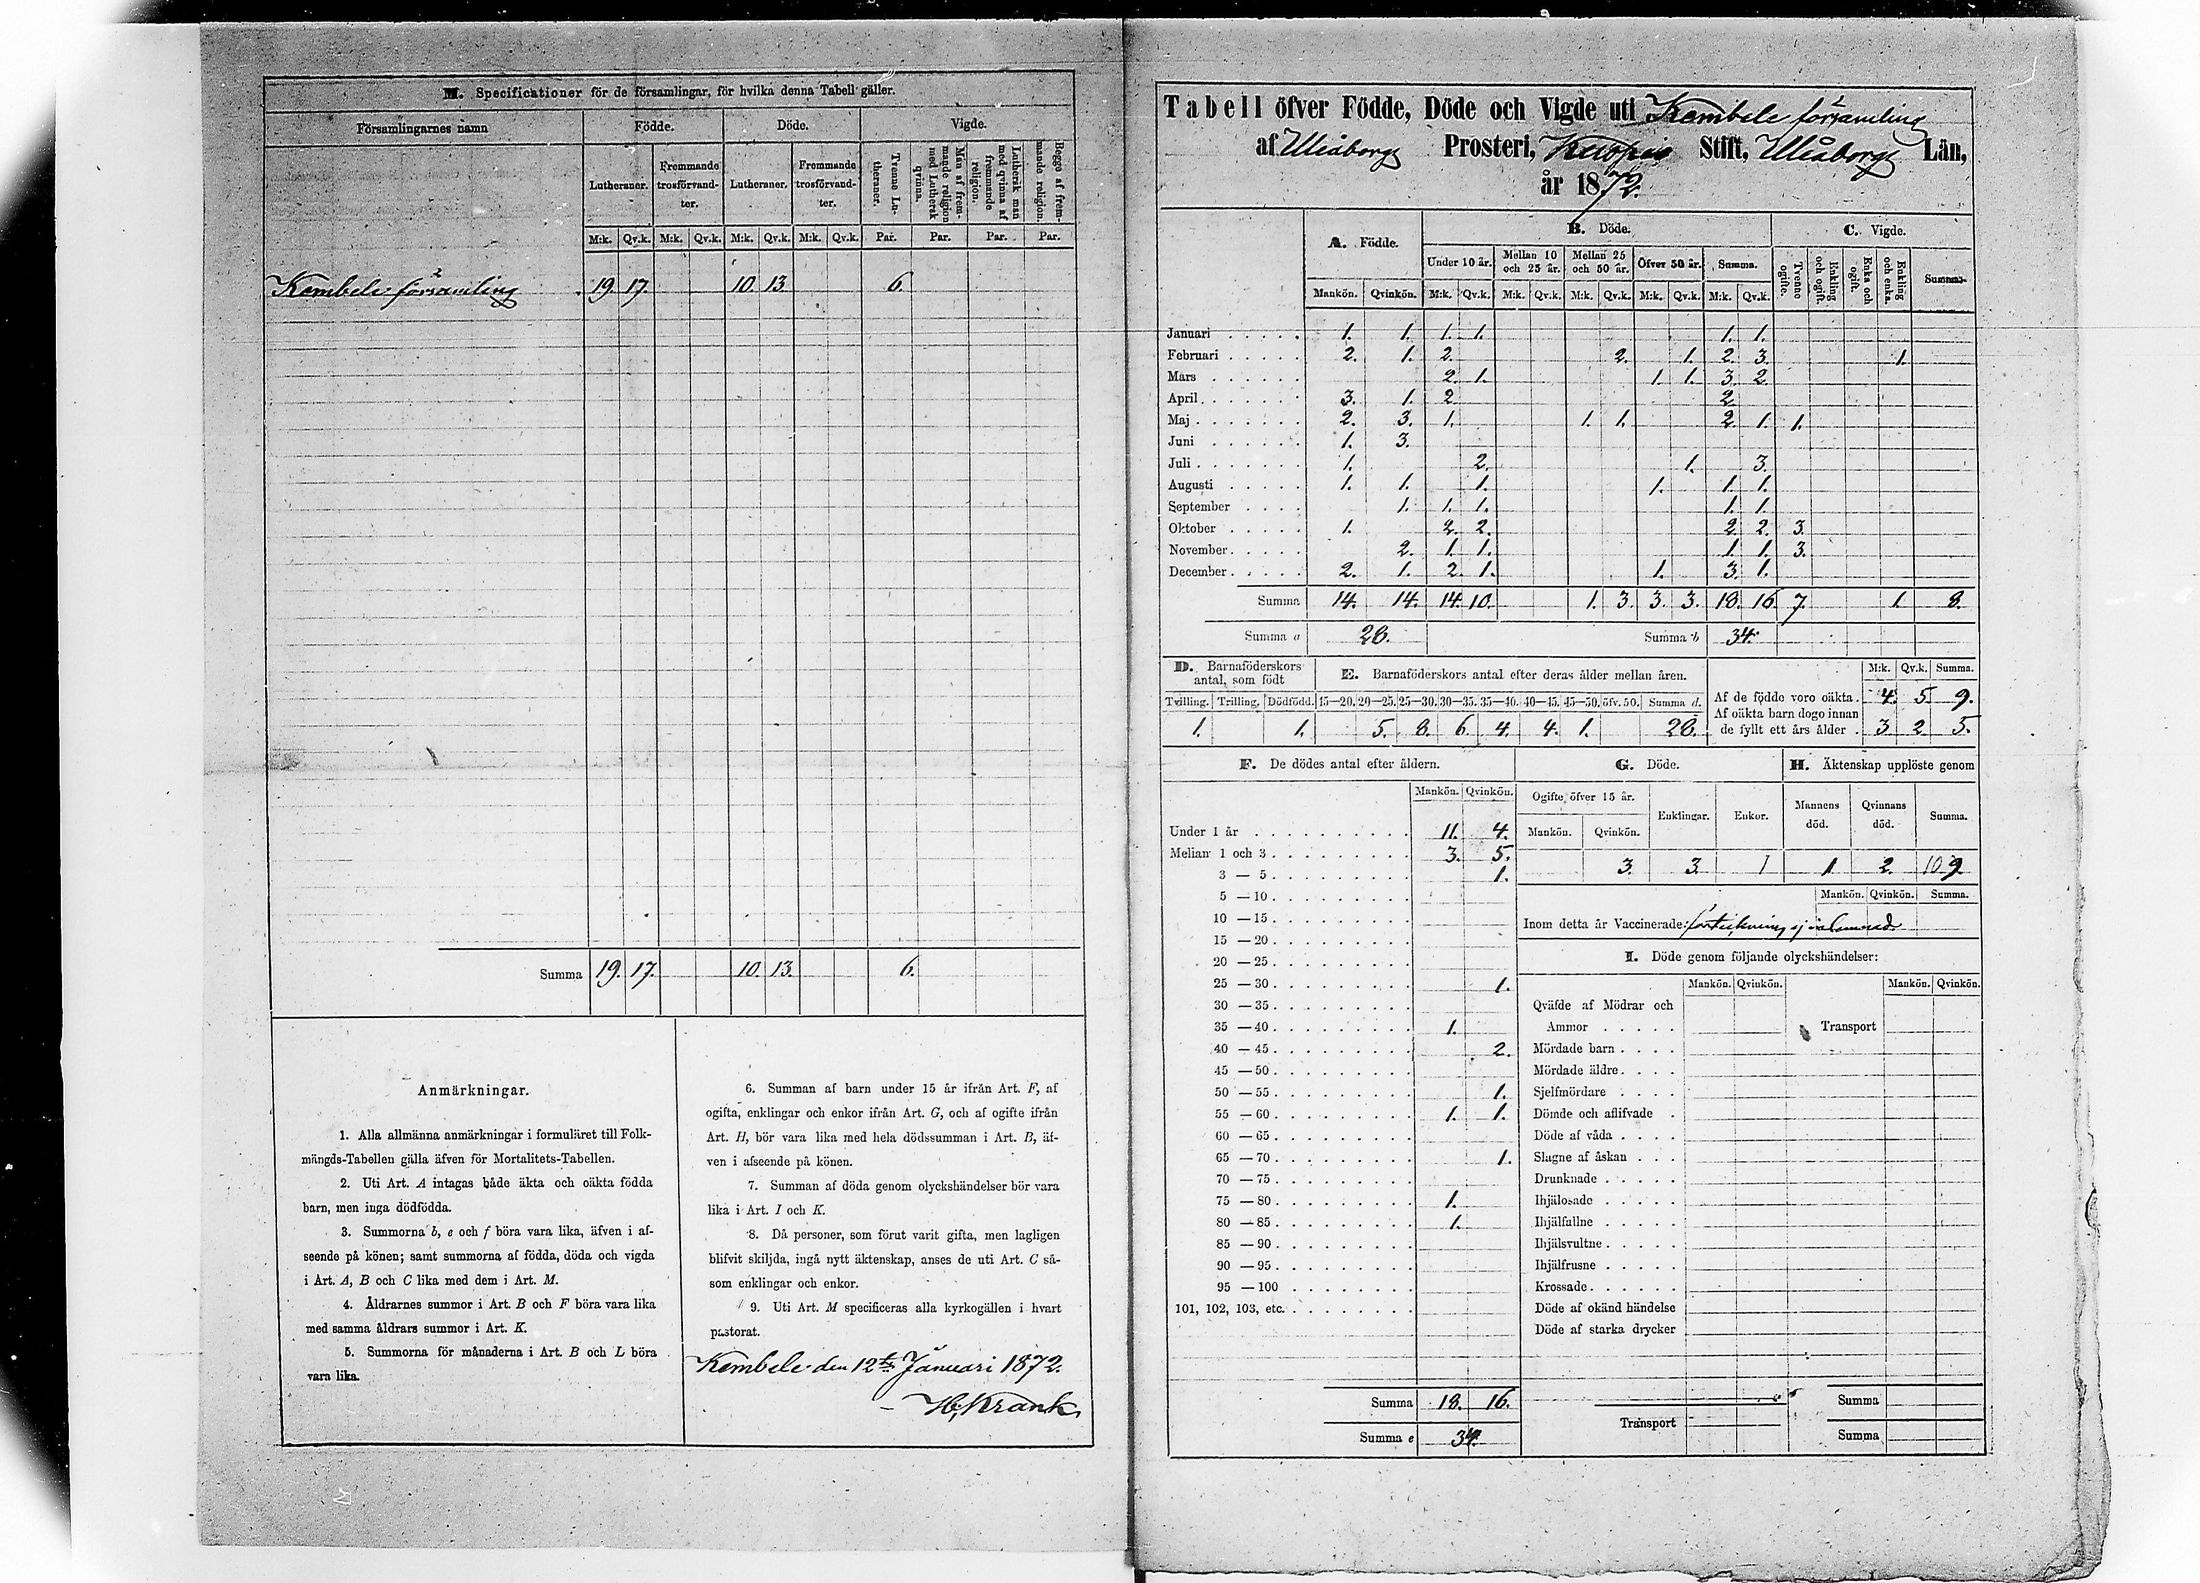 M. Specificationer för de församlingar, för hvilka denna Tabell gäller.
Församlingarnes namn Födde. Döde. Vigde.
Lutheraner. Fremmande trosförvandter. Lutheraner. Fremmande trosförvandter. Tvenne Lutheraner. Man af fremmande religion med Luthersk qvinna. Luthersk man med qvinna af fremmande religion. Begge af fremmande religion.
M:k. Qv.k. M:k. Qv.k. M:k. Qv.k. M:k. Qv.k. Par. Par. Par. Par.
Kembele församling 19. 17. 10. 13. 6.
Summa 19. 17. 10. 13. 6.
Anmärkningar.
1. Alla allmänna anmärkningar i formuläret till Folk-
mängds-Tabellen gälla äfven för Mortalitets-Tabellen.
2. Uti Art. A intagas både äkta och oäkta födda
barn, men inga dödfödda.
3. Summorna b, e och f böra vara lika, äfven i af-
seende på könen; samt summorna af födda, döda och vigda
i Art. A, B och C lika med dem i Art. M.
4. Åldrarnes summor i Art. B och F böra vara lika
med samma åldrars summor i Art. K.
5. Summorna för månaderna i Art. B och L böra
vara lika.
6. Summan af barn under 15 år ifrån Art. F, af
ogifta, enklingar och enkor ifrån Art. G, och af ogifte ifrån
Art. H, bör vara lika med hela dödssumman i Art. B, äf-
ven i afseende på könen.
7. Summan af döda genom olyckshändelser bör vara
lika i Art. I och K.
8. Då personer, som förut varit gifta, men lagligen
blifvit skiljda, ingå nytt äktenskap, anses de uti Art. C så-
som enklingar och enkor.
9. Uti Art. M specificeras alla kyrkogällen i hvart
pastorat.
Kembele den 12te Januari 1872.
H. Krank
Tabell öfver Födde, Döde och Vigde uti Kembele församling
af Uleåborgs Prosteri, Kuopio Stift, Uleåborgs Län,
år 1872.
A. Födde. B. Döde. C. Vigde.
Under 10 år. Mellan 10 och 25 år. Mellan 25 och 50 år. Öfver 50 år. Summa. Tvenne ogifte. Enkling och ogift. Enka och ogift. Enkling och enka. Summa.
Mankön. Qvinkön. M:k. Qv.k. M:k. Qv.k. M:k. Qv.k. M:k. Qv.k. M:k. Qv.k.
Januari 1. 1. 1. 1. 1. 1.
Februari 2. 1. 2. 2. 1. 2. 3. 1.
Mars 2. 1. 1. 1. 3. 2.
April 3. 1. 2 2
Maj 2. 3. 1. 1. 1. 2. 1. 1.
Juni 1. 3.
Juli 1. 2. 1. 3.
Augusti 1. 1. 1. 1. 1. 1.
September 1. 1. 1. 1. 1.
Oktober 1. 2. 2. 2. 2. 3.
November 2. 1. 1. 1. 1. 3.
December 2. 1. 2. 1. 1. 3. 1.
Summa 14. 14. 14. 10. 1. 3. 3. 3. 18. 16 7. 1. 8.
Summa a 28. Summa b 34.
D. Barnaföderskors antal, som födt
Tvilling. Trilling. Dödfödd.
1. 1.
E. Barnaföderskors antal efter deras ålder mellan åren.
15—20. 20—25. 25—30. 30—35. 35—40. 40—45. 45—50. öfv. 50. Summa d.
5. 8. 6. 4. 4. 1. 28.
M:k. Qv.k. Summa.
Af de födde voro oäkta. 4. 5. 9.
Af oäkta barn dogo innan
de fyllt ett års ålder. 3. 2 5.
F. De dödes antal efter åldern.
Mankön. Qvinkön.
Under 1 år 11. 4.
Mellan 1 och 3 3. 5.
3 — 5 1.
5 — 10
10 — 15
15 — 20
20 — 25
25 — 30 1.
30 — 35
35 — 40 1.
40 — 45 2.
45 — 50
50 — 55 1.
55 — 60 1. 1.
60 — 65
65 — 70 1.
70 — 75
75 — 80 1.
80 — 85 1.
85 — 90
90 — 95
95 — 100
101, 102, 103, etc.
Summa 18. 16.
Summa e 34.
G. Döde.
Ogifte öfver 15 år. Enklingar. Enkor.
Mankön. Qvinkön.
3. 3. 1
H. Äktenskap upplöste genom
Mannens död. Qvinnans död. Summa.
1. 2. 10 9.
Mankön. Qvinkön. Summa.
Inom detta år Vaccinerade:
I. Döde genom följande olyckshändelser:
Mankön. Qvinkön. Mankön. Qvinkön.
Qväfde af Mödrar och
Ammor Transport
Mördade barn
Mördade äldre
Sjelfmördare
Dömde och aflifvade
Döde af våda
Slagne af åskan
Drunknade
Ihjälosade
Ihjälfallne
Ihjälsvultne
Ihjälfrusne
Krossade
Döde af okänd händelse
Döde af starka drycker
Summa
Transport
Summa